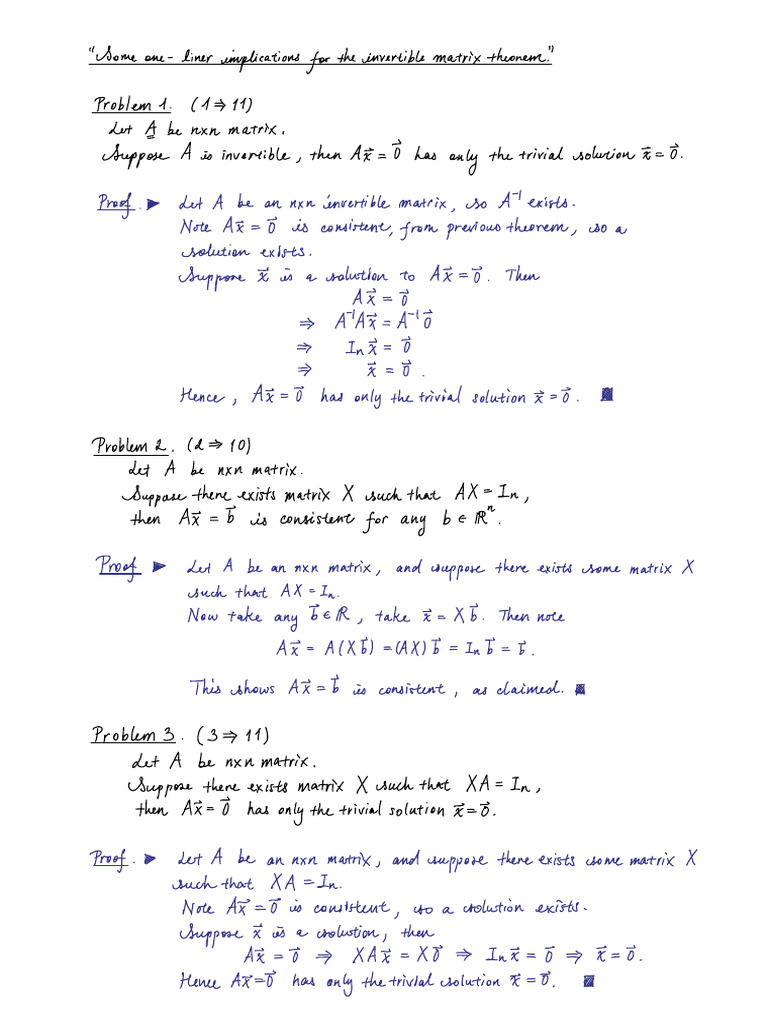 "Some one-liner implications for the invertible matrix theorem."
Problem 1. (1⇒11)
Let A be n×n matrix.
Suppose A is invertible, then Ax⃗ = 0⃗ has only the trivial solution x⃗ = 0⃗.
Proof. ► Let A be an n×n invertible matrix, so A⁻¹ exists.
Note Ax⃗ = 0⃗ is consistent, from previous theorem, so a
solution exists.
Suppose x⃗ is a solution to Ax⃗ = 0⃗. Then
Ax⃗ = 0⃗
⇒ A⁻¹Ax⃗ = A⁻¹0⃗
⇒ Iₙx⃗ = 0⃗
⇒ x⃗ = 0⃗.
Hence, Ax⃗ = 0⃗ has only the trivial solution x⃗ = 0⃗. ■
Problem 2. (2⇒10)
Let A be n×n matrix.
Suppose there exists matrix X such that AX = Iₙ,
then Ax⃗ = b⃗ is consistent for any b ∈ ℝⁿ.
Proof ► Let A be an n×n matrix, and suppose there exists some matrix X
such that AX = Iₙ.
Now take any b⃗ ∈ ℝ, take x⃗ = Xb⃗. Then note
Ax⃗ = A(Xb⃗) = (AX)b⃗ = Iₙb⃗ = b⃗.
This shows Ax⃗ = b⃗ is consistent, as claimed. ■
Problem 3. (3⇒11)
Let A be n×n matrix.
Suppose there exists matrix X such that XA = Iₙ,
then Ax⃗ = 0⃗ has only the trivial solution x⃗ = 0⃗.
Proof. ► Let A be an n×n matrix, and suppose there exists some matrix X
such that XA = Iₙ.
Note Ax⃗ = 0⃗ is consistent, so a solution exists.
Suppose x⃗ is a solution, then
Ax⃗ = 0⃗ ⇒ XAx⃗ = X0⃗ ⇒ Iₙx⃗ = 0⃗ ⇒ x⃗ = 0⃗.
Hence Ax⃗ = 0⃗ has only the trivial solution x⃗ = 0⃗. ■